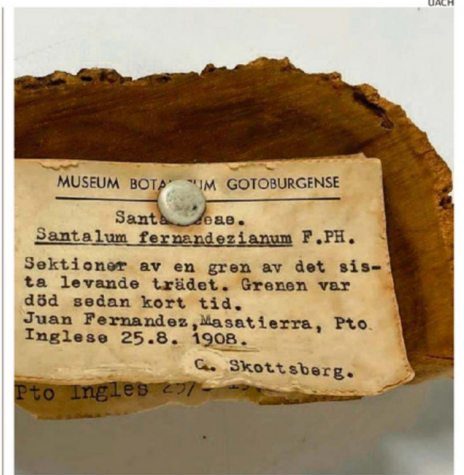 UACH
MUSEUM BOTA UM GOTOBURGENSE
Santa eae.
Santalum fernandezianum F.PH.
Sektioner av en gren av det sis-
ta levande trädet. Grenen var
död sedan kort tid.
Juan Fernandez,Masatierra, Pto.
Inglese 25.8. 1908.
C. Skottsberg.
Pto Ingles